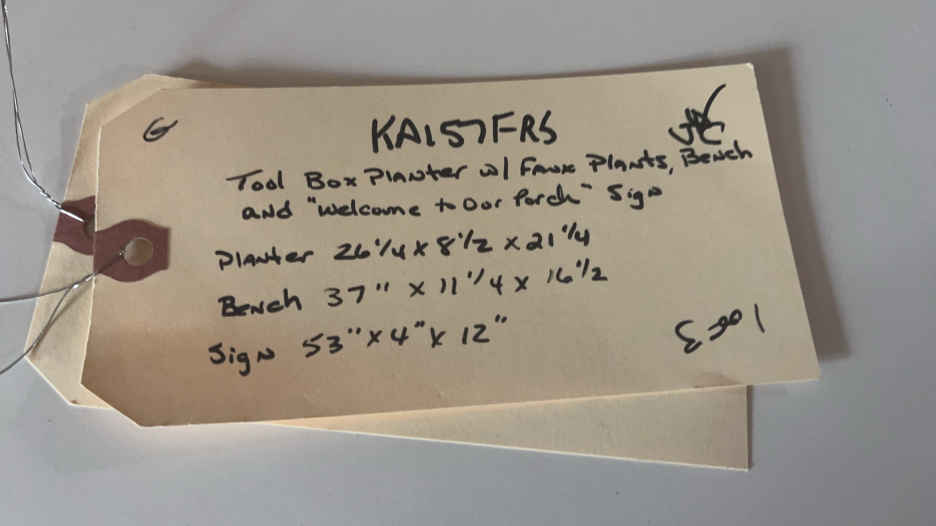 G
KA157FRS
Tool Box Planter w/ Faux Plants, Bench
and "Welcome to Our Porch" Sign
Planter 26 1/4 x 8 1/2 x 21 1/4
Bench 37" x 11 1/4 x 16 1/2
Sign 53" x 4" x 12"
1 of 3